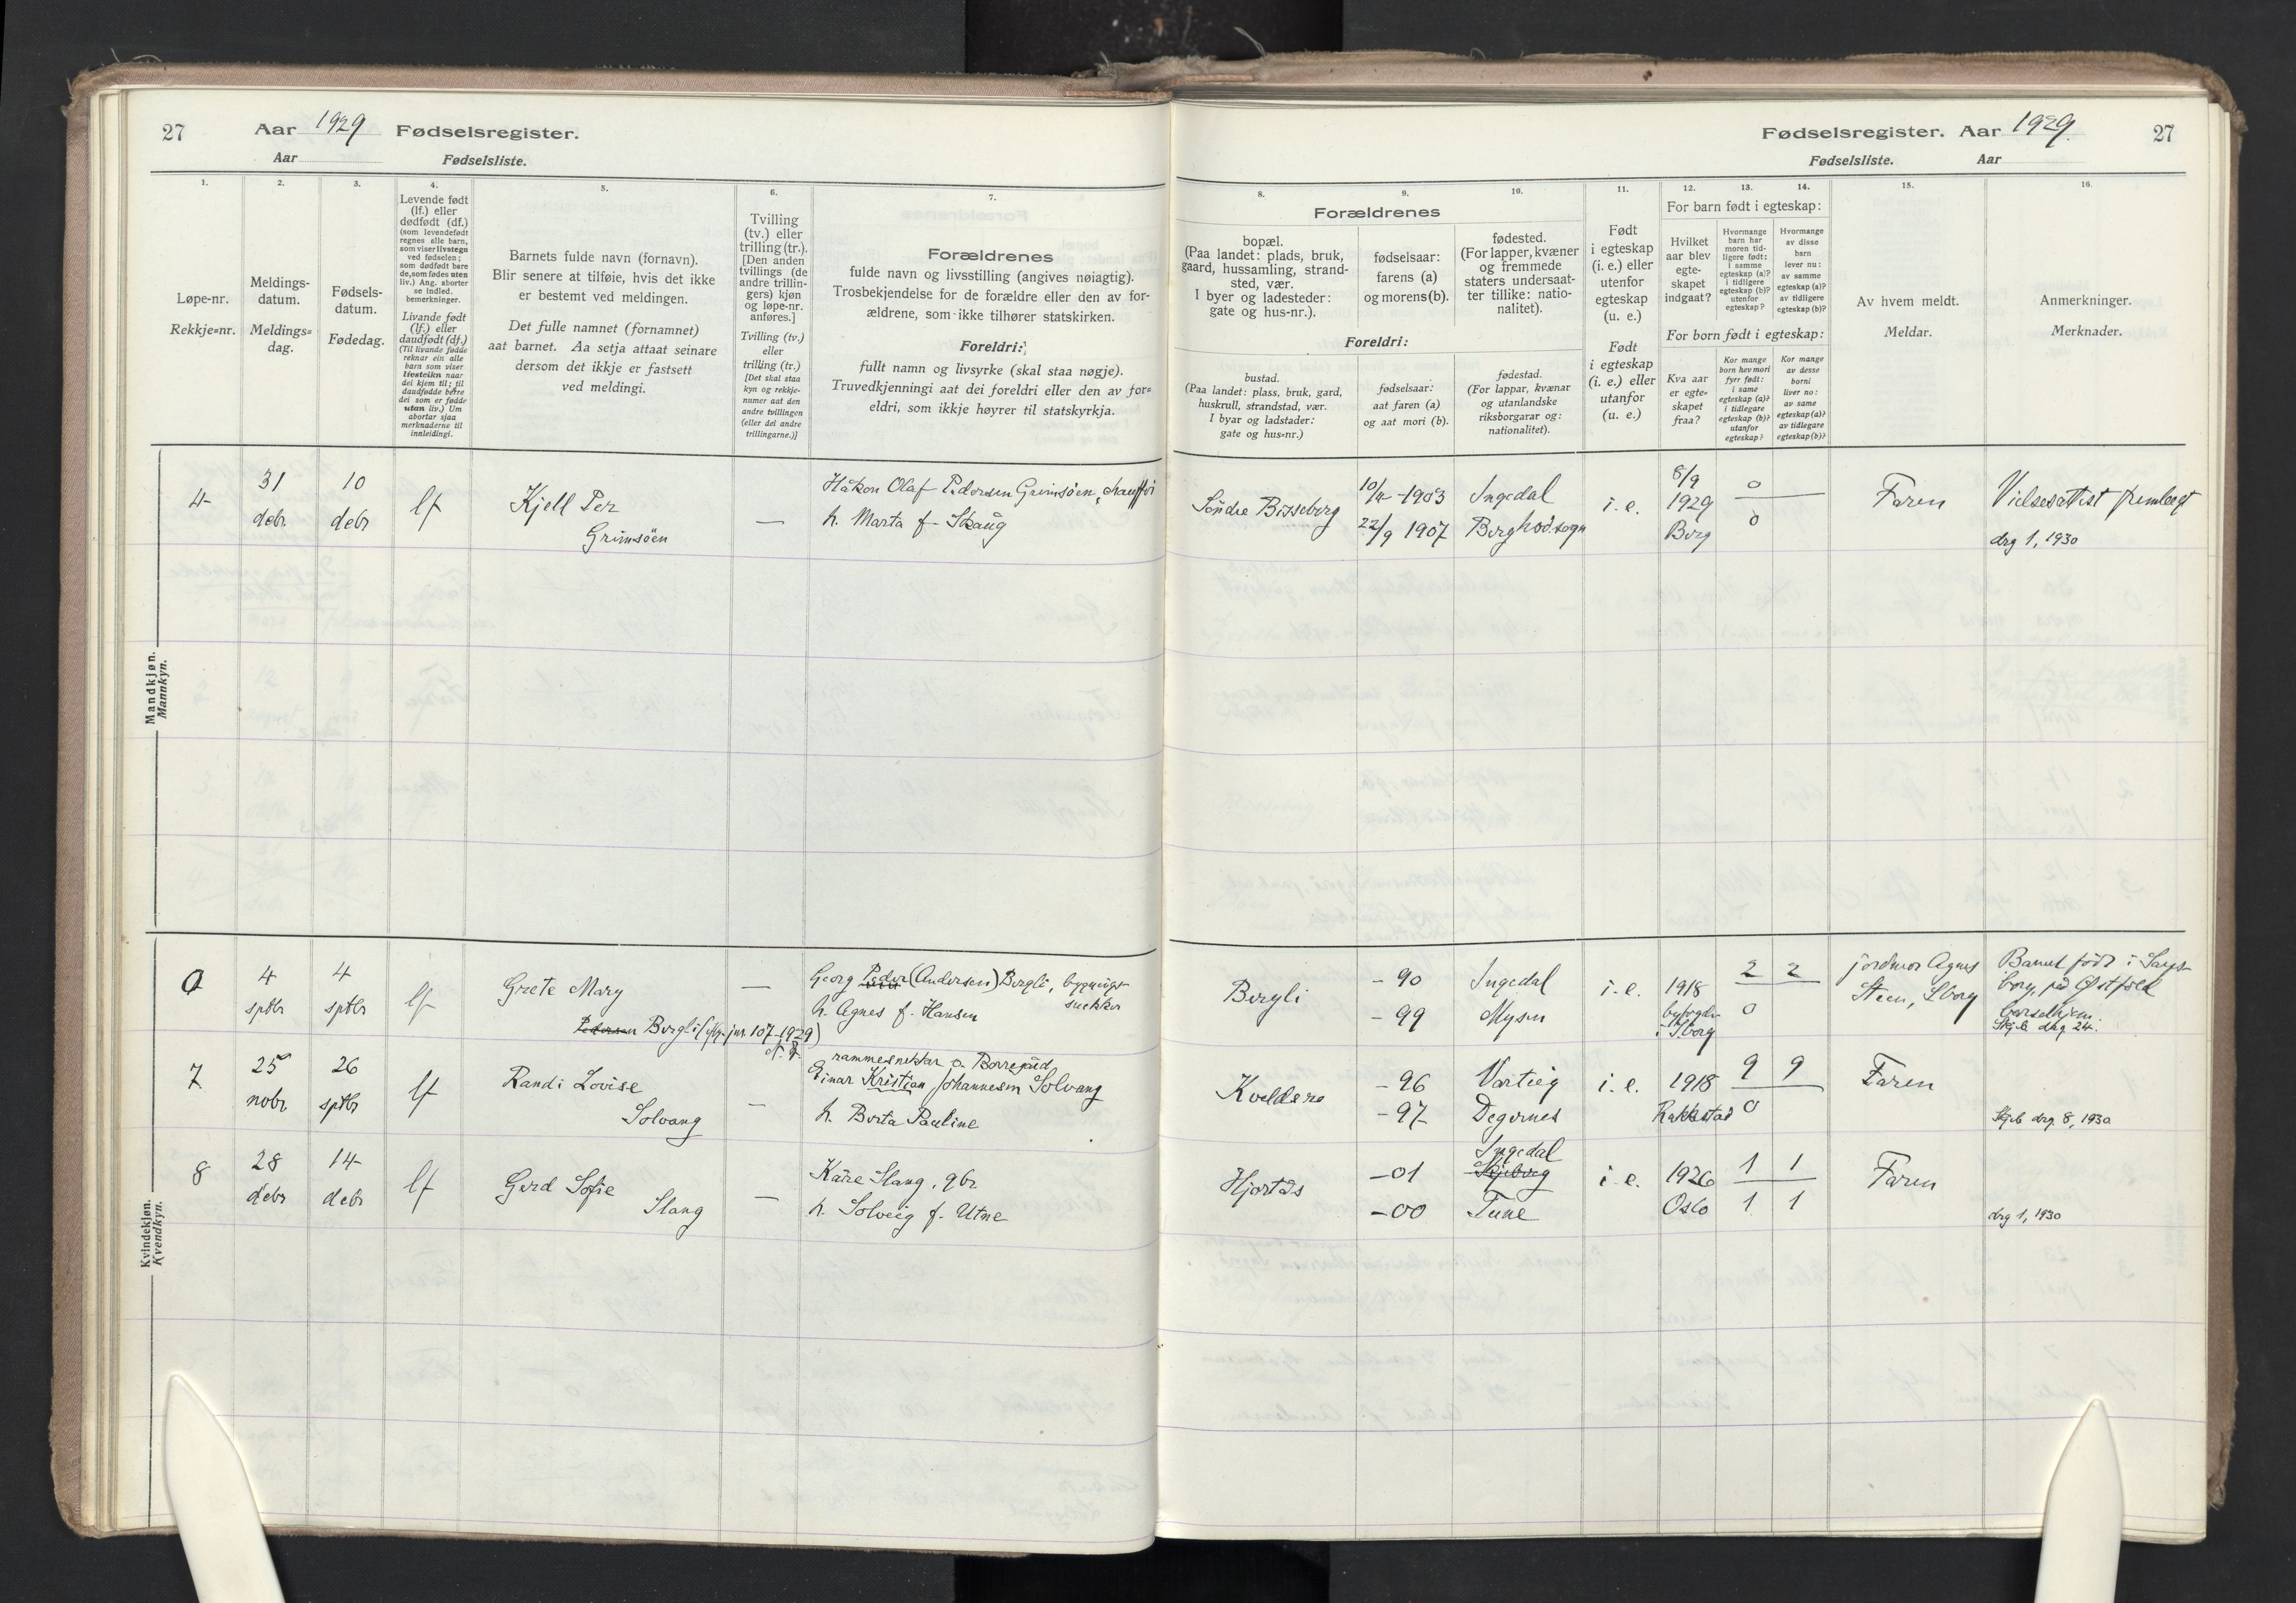 27 Aar 1929 Fødselsregister.
Aar Fødselsliste.
1.
Løpe-nr.
Rekkje=nr.
2.
Meldings-
datum.
Meldings=
dag.
3.
Fødsels-
datum.
Fødedag.
4.
Levende født
(lf.) eller
dødfødt (df.)
(som levendefødt
regnes alle barn,
som viser livstegn
ved fødselen;
som dødfødt bare
de, som fødes uten
liv.) Ang. aborter
se indled.
bemerkninger.
Livande født
(lf.) eller
daudfødt (df.)
(Til livande fødde
reknar ein alle
barn som viser
livsteikn naar
dei kjem til; til
daudfødde berre
dei som er fødde
utan liv.) Um
abortar sjaa
merknaderne til
innleidingi.
5.
Barnets fulde navn (fornavn).
Blir senere at tilføie, hvis det ikke
er bestemt ved meldingen.
Det fulle namnet (fornamnet)
aat barnet. Aa setja attaat seinare
dersom det ikkje er fastsett
ved meldingi.
6.
Tvilling
(tv.) eller
trilling (tr.).
[Den anden
tvillings (de
andre trillin-
gers) kjøn
og løpe-nr.
anføres.]
Tvilling (tv.)
eller
trilling (tr.)
[Det skal staa
kyn og rekkje-
numer aat den
andre tvillingen
(eller dei andre
trillingarne.)]
7.
Forældrenes
fulde navn og livsstilling (angives nøiagtig).
Trosbekjendelse for de forældre eller den av for-
ældrene, som ikke tilhører statskirken.
Foreldri:
fullt namn og livsyrke (skal staa nøgje).
Truvedkjenningi aat dei foreldri eller den av for=
eldri, som ikkje høyrer til statskyrkja.
Mandkjøn.
Mannkyn.
4 31 10 lf Kjell Per — Håkon Olaf Pedersen Grimsøen, chauffør
debr debr Grimsøen h. Marta f. Skaug
Kvindekjøn.
Kvendkyn.
4 4 lf Grete Mary — Georg Peder (Andersen) Bergli, bygnings-
sptbr sptbr h. Agnes f. Hansen snekker
Pedersen Bergli
7 25 26 lf Randi Lovise — Einar Kristian Johannesen Solvang
nobr sptbr Solvang h. Berta Pauline
8 28 14 lf Gerd Sofie — Kåre Slang, gbr.
debr debr Slang h. Solveig f. Utne
Fødselsregister. Aar 1929. 27
Fødselsliste. Aar
8.
Forældrenes
bopæl.
(Paa landet: plads, bruk,
gaard, hussamling, strand-
sted, vær.
I byer og ladesteder:
gate og hus-nr.).
Foreldri:
bustad.
(Paa landet: plass, bruk, gard,
huskrull, strandstad, vær.
I byar og ladstader:
gate og hus=nr.)
9.
fødselsaar:
farens (a)
og morens (b).
fødselsaar:
aat faren (a)
og aat mori (b).
10.
fødested.
(For lapper, kvæner
og fremmede
staters undersaat-
ter tillike: natio-
nalitet).
fødestad.
(For lappar, kvænar
og utanlandske
riksborgarar og:
nationalitet).
11.
Født
i egteskap
(i. e.) eller
utenfor
egteskap
(u. e.)
Født
i egteskap
(i. e.) eller
utanfor
(u. e.)
12. 13. 14.
For barn født i egteskap:
Hvilket
aar blev
egte-
skapet
indgaat?
Hvormange
barn har
moren tid-
ligere født:
i samme
egteskap (a)?
i tidligere
egteskap (b)?
utenfor
egteskap?
Hvormange
av disse
barn
lever nu:
av samme
egteskap (a)?
av tidligere
egteskap (b)?
For born født i egteskap:
Kva aar
er egte-
skapet
fraa?
Kor mange
born hev mori
fyrr født:
i same
egteskap (a)?
i tidlegare
egteskap (b)?
utanfor
egteskap?
Kor mange
av desse
borni
liver no:
av same
egteskap (a)?
av tidlegare
egteskap (b)?
15.
Av hvem meldt.
Meldar.
16.
Anmerkninger.
Merknader.
Søndre Bisseberg 10/4 -1903 Ingedal i. e. 8/9 0 — Faren Vielsesattest fremlagt
22/9 1907 1929 0
Berg drg 1, 1930
Bergli -90 Ingedal i. e. 1918 2 2 jordmor Agnes Barnet født i Sarps-
-99 Mysen 0 Steen, Sborg borg, på Østfold
Kveldsro -96 Varteig i. e. 1918 9 9 Faren
-97 Degernes Rakkestad 0 drg. 8, 1930
Hjortås -01 Ingedal i. e. 1926 1 1 Faren
-00 Tune Oslo 1 1 drg 1, 1930